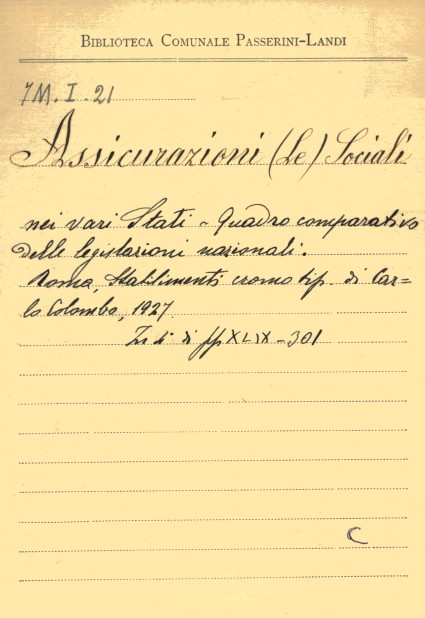 BIBLIOTECA COMUNALE PASSERINI-LANDI
7M. I. 21
Assicurazioni (Le) Sociali
nei vari Stati - Quadro comparativo
delle legislazioni nazionali.
Roma, Stabilimenti cromo tip. di Car=
lo Colombo, 1927
In 4° di pp XLIX - 301
C